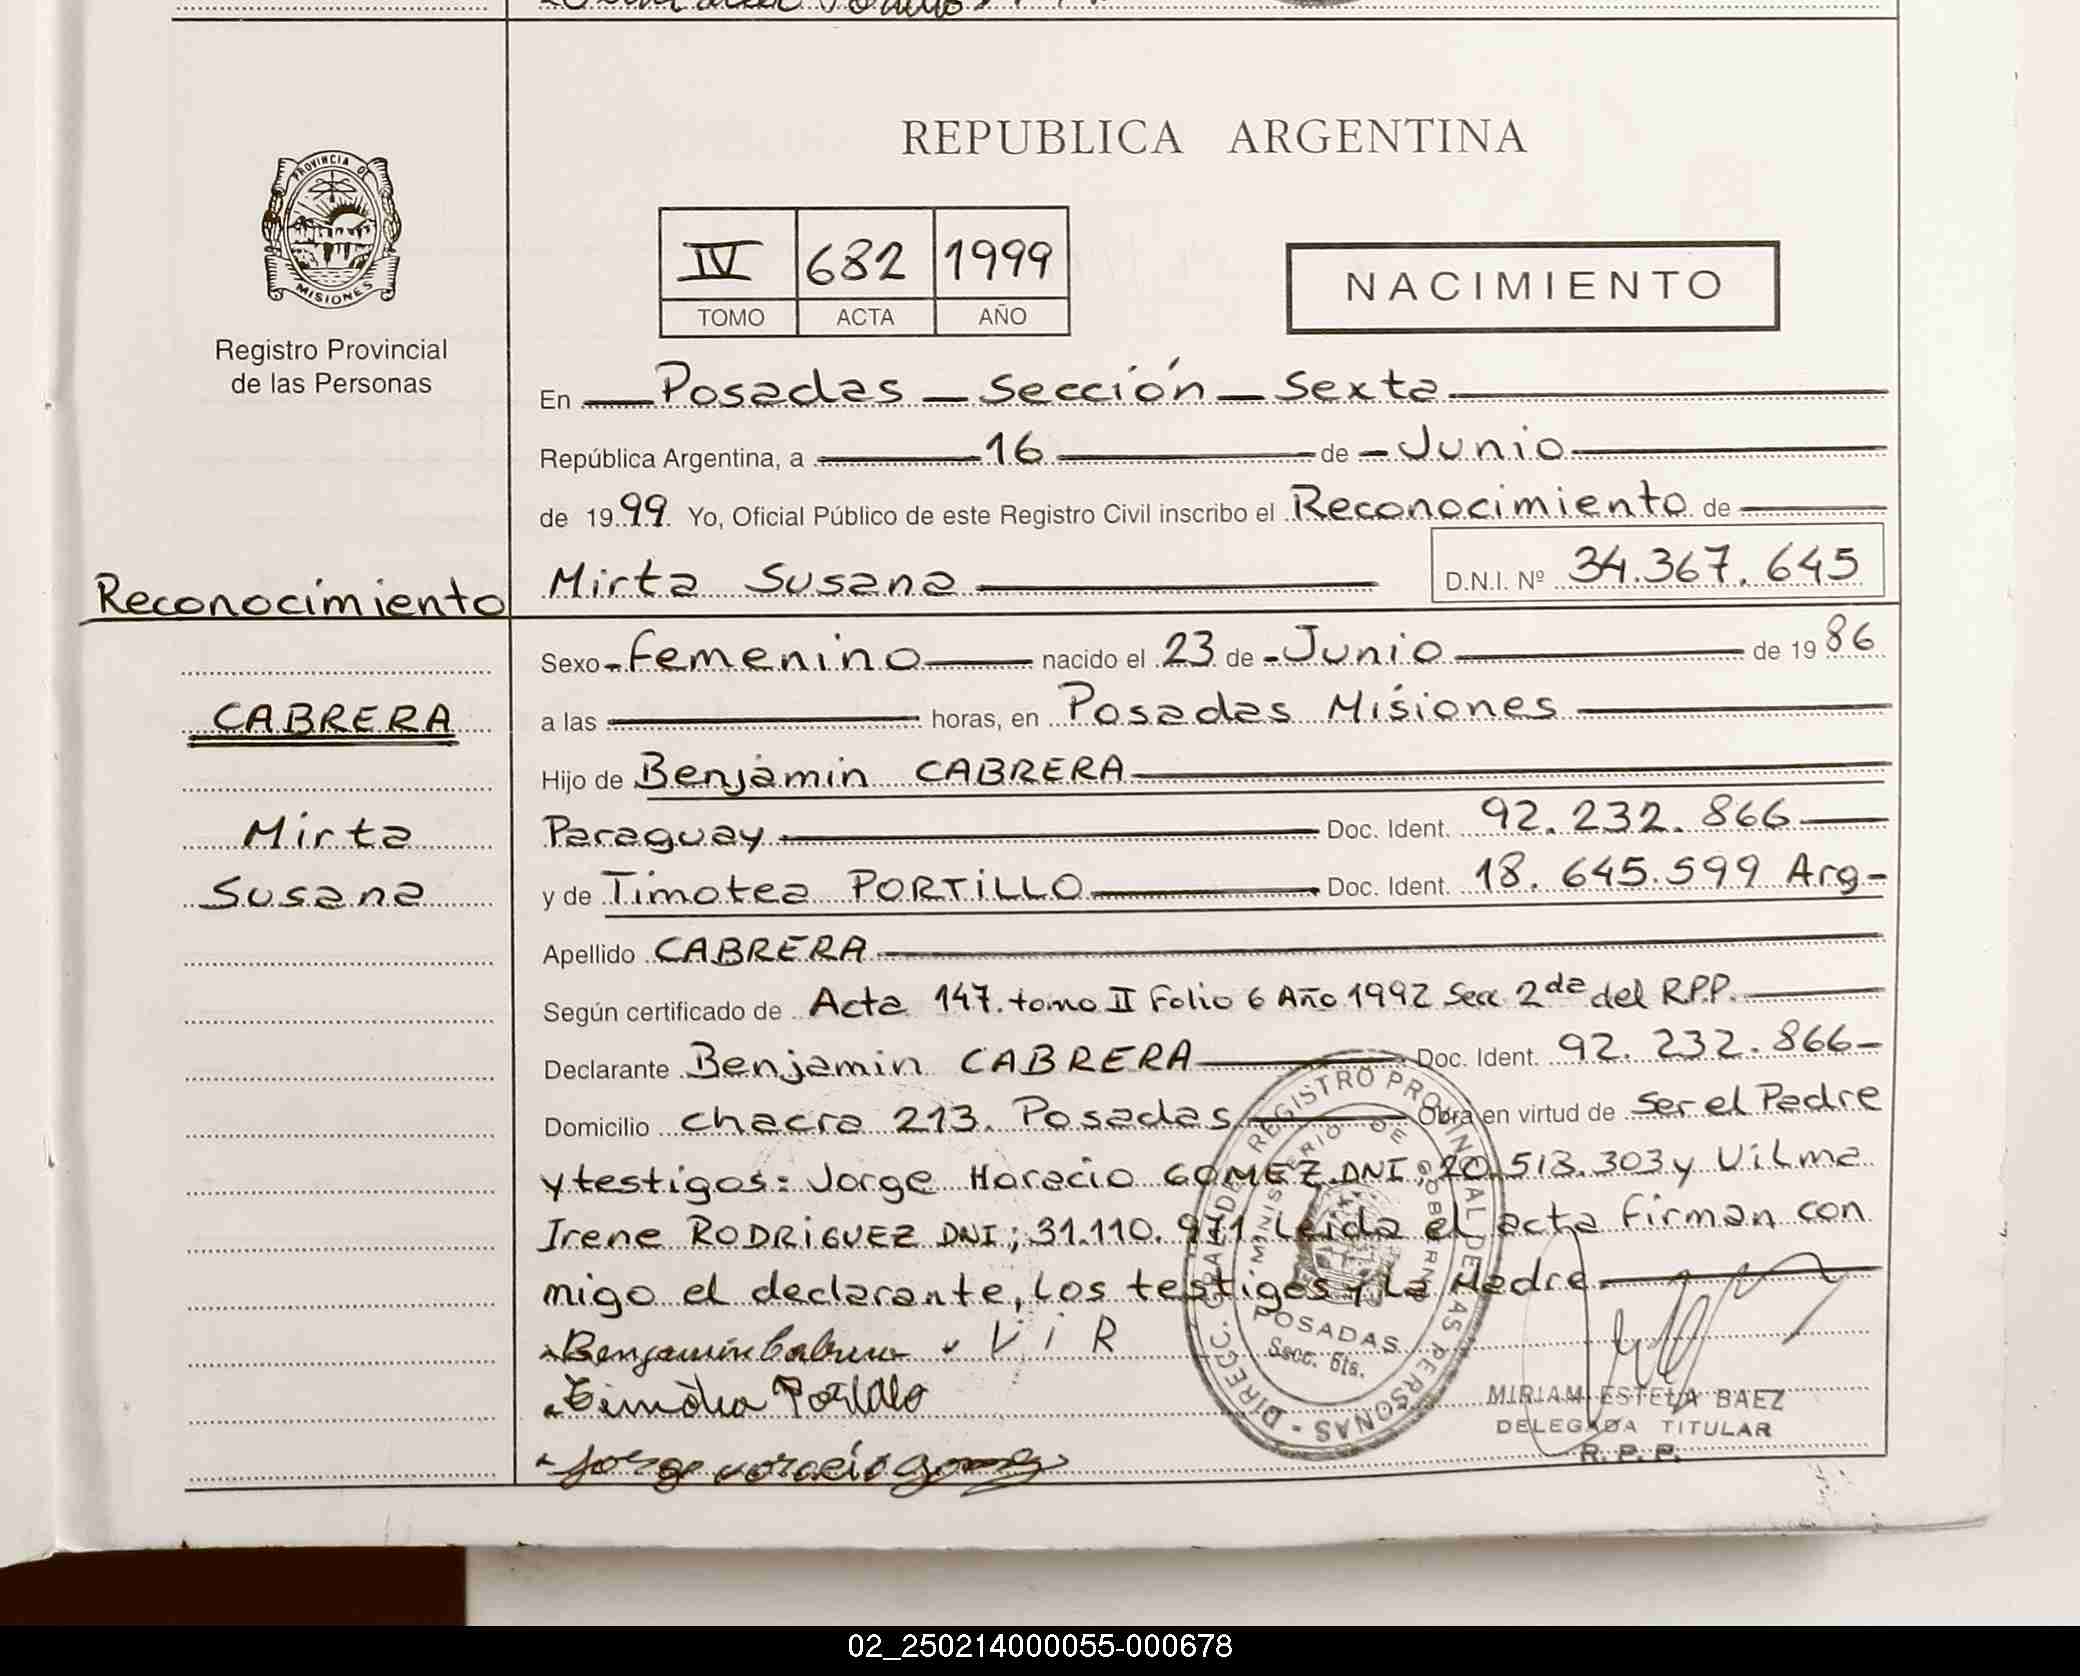 REPUBLICA ARGENTINA
PROVINCIA DE
MISIONES
Registro Provincial
de las Personas
IV 682 1999
TOMO ACTA AÑO
NACIMIENTO
En Posadas - Sección - Sexta
República Argentina, a 16 de Junio
de 1999 Yo, Oficial Público de este Registro Civil inscribo el Reconocimiento de
Mirta Susana D.N.I. Nº 34.367.645
Reconocimiento
CABRERA
Mirta
Susana
Sexo femenino nacido el 23 de Junio de 1986
a las horas, en Posadas Misiones
Hijo de Benjamin CABRERA
Paraguay Doc. Ident. 92.232.866
y de Timotea PORTILLO Doc. Ident. 18.645.599 Arg-
Apellido CABRERA
Según certificado de Acta 147. tomo II Folio 6 Año 1992 Secc 2da del R.P.P.
Declarante Benjamin CABRERA Doc. Ident. 92.232.866-
Domicilio chacra 213. Posadas Obra en virtud de ser el Padre
y testigos: Jorge Horacio GOMEZ DNI; 20.513.303 y Vilma
Irene RODRIGUEZ DNI; 31.110.971 Leida el acta firman con
migo el declarante, los testigos y la Madre
Benjamin Cabrera V i R
Timotea Portillo
Jorge Horacio Gomez
DIRECC. GRAL DE REGISTRO PROVINCIAL DE LAS PERSONAS
MINISTERIO DE GOBIERNO
POSADAS
Secc. 6ta.
MIRIAM ESTELA BAEZ
DELEGADA TITULAR
R. P. P.
02_250214000055-000678